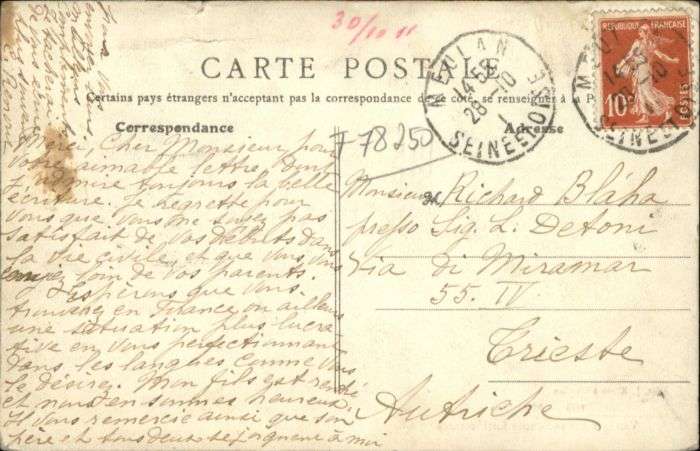 30/10 11
CARTE POSTALE
Certains pays étrangers n'acceptant pas la correspondance de ce côté, se renseigner à la P
Correspondance
Adresse
MEULAN
14 55
28 -10
11
SEINE ET OISE
REPUBLIQUE FRANÇAISE
10
POSTES
F 78250
Merci, Cher Monsieur pour
votre aimable lettre, dont
j'admire toujours la belle
écriture. Je regrette pour
vous que vous ne soyez pas
satisfait de vos débuts dans
la vie civile, et que vous vous
loin de vos parents.
Espérons que vous
trouverez en France ou ailleurs
une situation plus lucra
tive en vous perfectionnant
dans les langues comme vous
le désirez. Mon fils est rentré
et nous en sommes heureux.
Il vous remercie ainsi que son
père et tous deux se joignent à moi
pour vous
Monsieur Richard Bláha
presso Sig. L. Detoni
Via di Miramar
55. IV
Trieste
Autriche